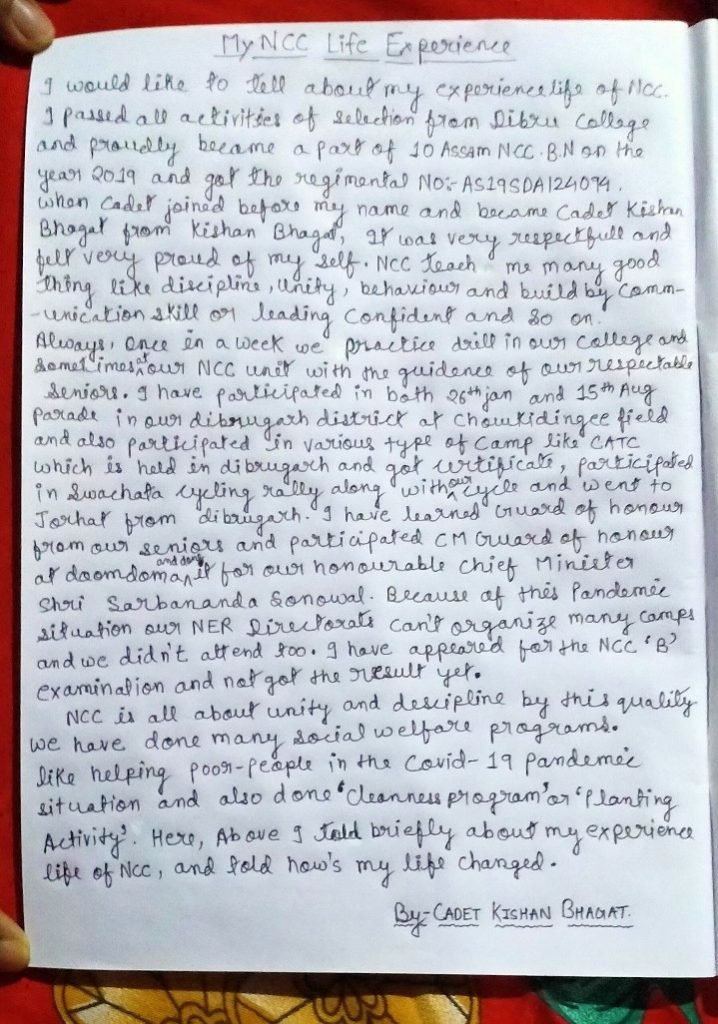 My NCC Life Experience
I would like to tell about my experience life of NCC.
I passed all activities of selection from Dibru College
and proudly became a part of 10 Assam NCC. B.N on the
year 2019 and got the regimental NO:- AS19SDA124094.
when Cadet joined before my name and became Cadet Kishan
Bhagat from Kishan Bhagat, It was very respectfull and
felt very proud of my self. NCC teach me many good
thing like discipline, Unity, behaviour and build by Comm-
-unication skill or leading Confident and so on.
Always, once in a week we practice drill in our College and
sometimes at our NCC unit with the guidence of our respectable
seniors. I have participated in both 26th jan and 15th Aug
Parade in our dibrugarh district at Chowkidingee field
and also participated in various type of Camp like CATC
which is held in dibrugarh and got certificate, participated
in Swachata cycling rally along with our cycle and went to
Jorhat from dibrugarh. I have learned Guard of honour
from our seniors and participated CM Guard of honour
at doomdoma and done it for our honourable Chief Minister
Shri Sarbananda Sonowal. Because of this Pandemic
situation our NER Directorate can't organize many camps
and we didn't attend too. I have appeared for the NCC 'B'
examination and not got the result yet.
NCC is all about unity and descipline by this quality
we have done many social welfare programs.
like helping poor-people in the Covid-19 pandemic
situation and also done 'Cleanness program' or 'Planting
Activity'. Here, Above I told briefly about my experience
life of NCC, and told how's my life changed.
By:- CADET KISHAN BHAGAT.